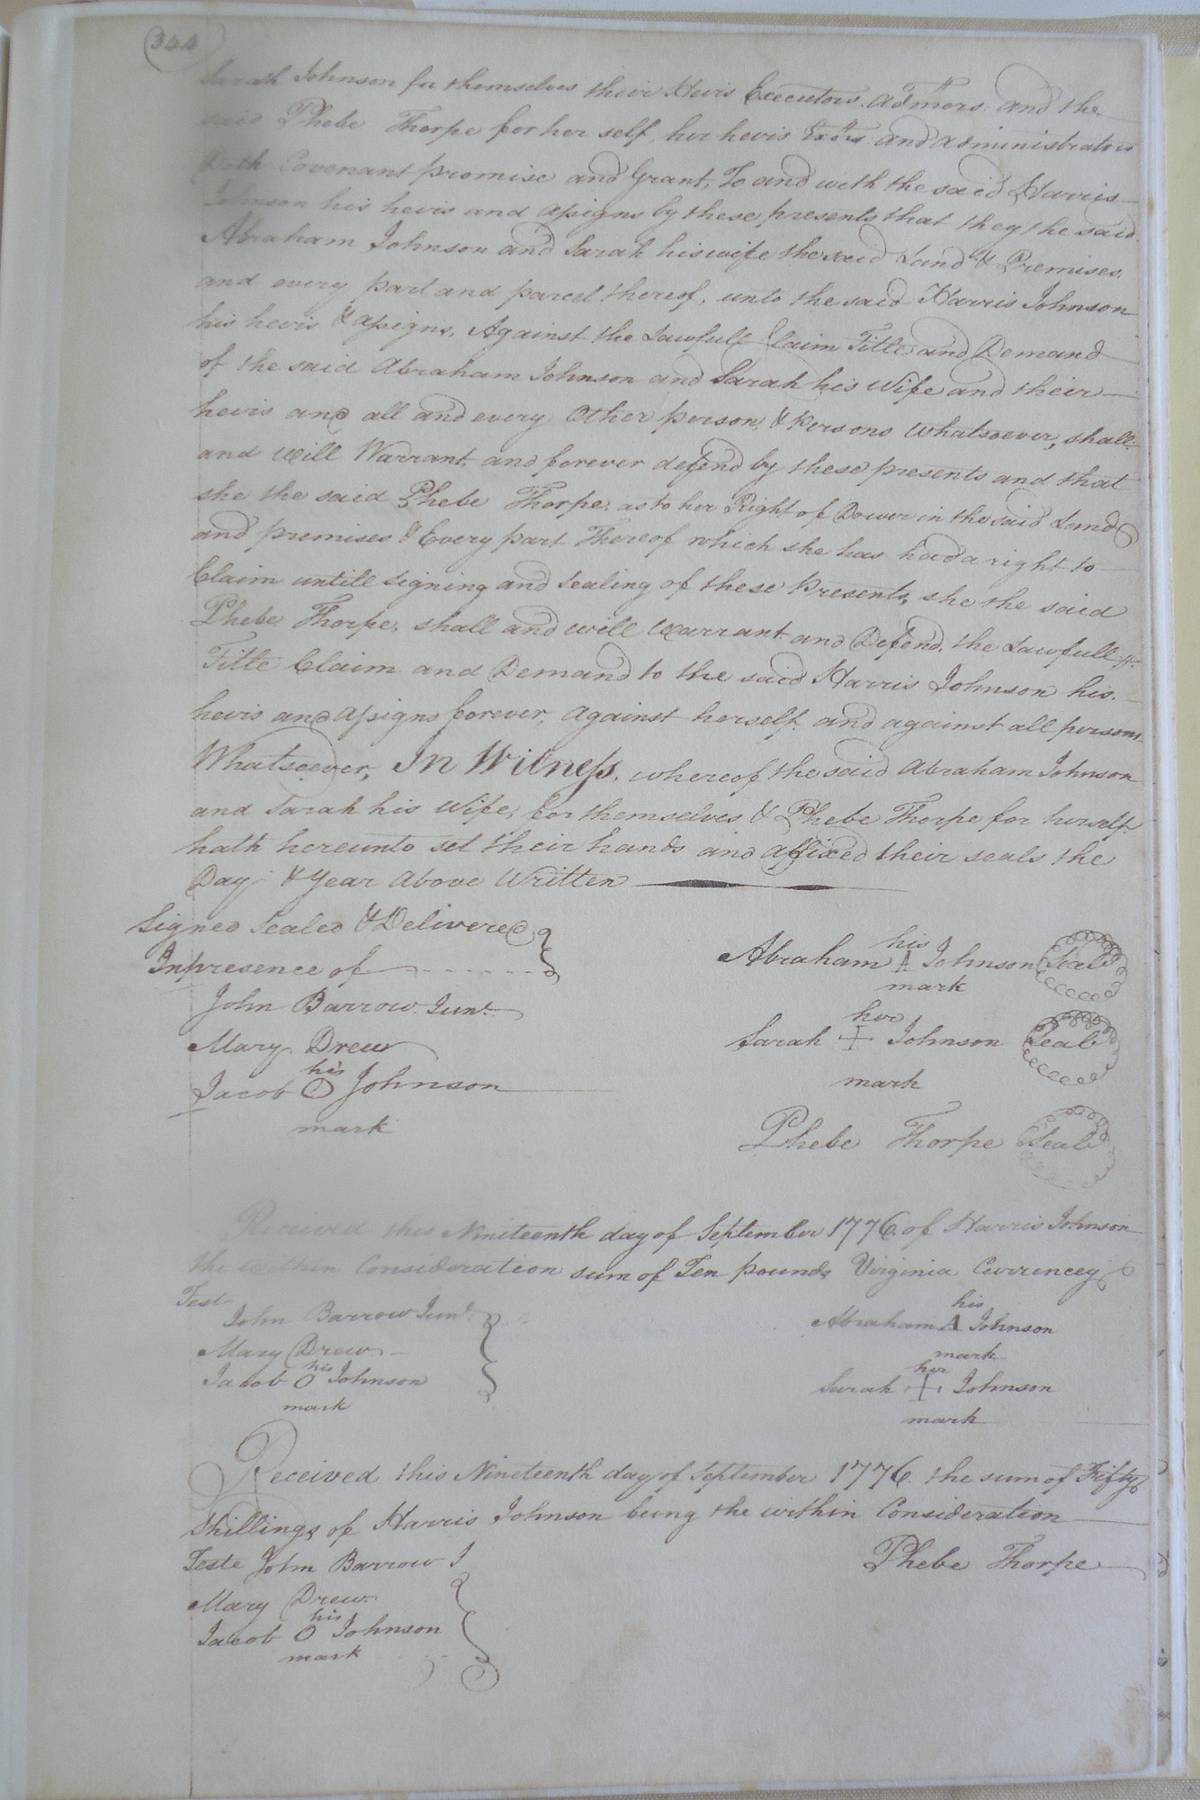 344
Sarah Johnson for themselves their Hevis Executors. Admrs. and the
said Phebe Thorpe for her self, her hevis Exrs. and administrators
Doth Covenant promise and Grant, To and with the said Harris
Johnson his hevis and assigns by these presents that they the said
Abraham Johnson and Sarah his wife the said Land & Premises,
and every part and parcel thereof, unto the said Harris Johnson
his hevis & assigns, Against the Lawfull Claim Title and Demand
of the said Abraham Johnson and Sarah his Wife and their
hevis and all and every Other person, & Persons Whatsoever, shall
and will Warrant and forever defend by these presents and that
she the said Phebe Thorpe, as to her Right of Dower in the said Land
and premises & Every part Thereof which she has had a right to
Claim untill signing and sealing of these Presents, she the said
Phebe Thorpe, shall and will warrant and Defend, the Lawfull
Title Claim and Demand to the said Harris Johnson his
hevis and assigns forever, against herself and against all persons
Whatsoever, In Witness, whereof the said Abraham Johnson
and Sarah his Wife, for themselves & Phebe Thorpe for herself
hath hereunto set their hands and affixed their seals the
Day & Year Above Written
Signed Sealed & Delivered
In presence of
John Barrow Junr.
Mary Drew
his
Jacob O Johnson
mark
his
Abraham A Johnson Seal
mark
her
Sarah + Johnson Seal
mark
Phebe Thorpe Seal
Received this Nineteenth day of September 1776 of Harris Johnson
the within Consideration sum of Ten pounds Virginia Currencey
Test
John Barrow Junr.
Mary Drew
his
Jacob O Johnson
mark
his
Abraham A Johnson
mark
her
Sarah + Johnson
mark
Received this Nineteenth day of September 1776. the sum of Fifty
Shillings of Harris Johnson being the within Consideration
Teste John Barrow J
Mary Drew
his
Jacob O Johnson
mark
Phebe Thorpe